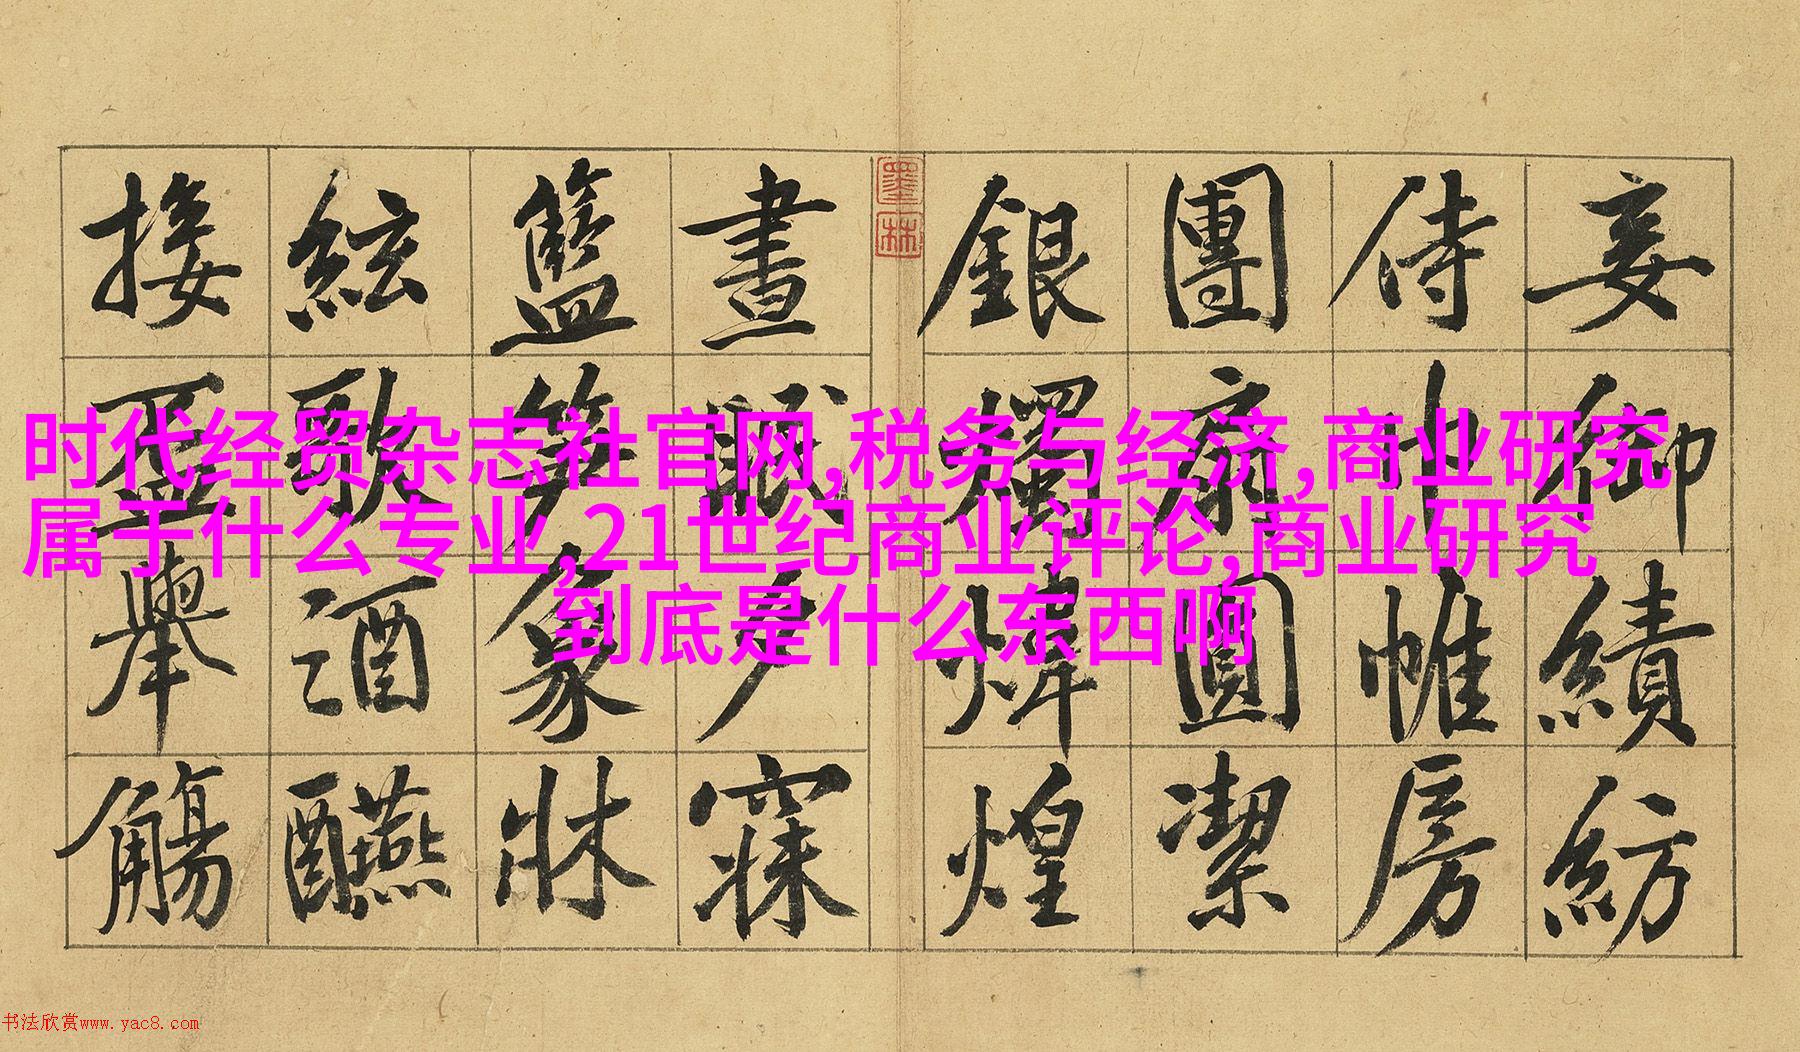 时代经贸杂志社官网,税务与经济,商业研究
属于什么专业,21世纪商业评论,商业研究
到底是什么东西啊
妾御績紡
侍巾帷房
團扇圓潔
銀燭煒煌
墨林
晝眠夕寐
籃笋象牀
絃歌酒醼
接盃舉觴
书法欣赏www.yac8.com